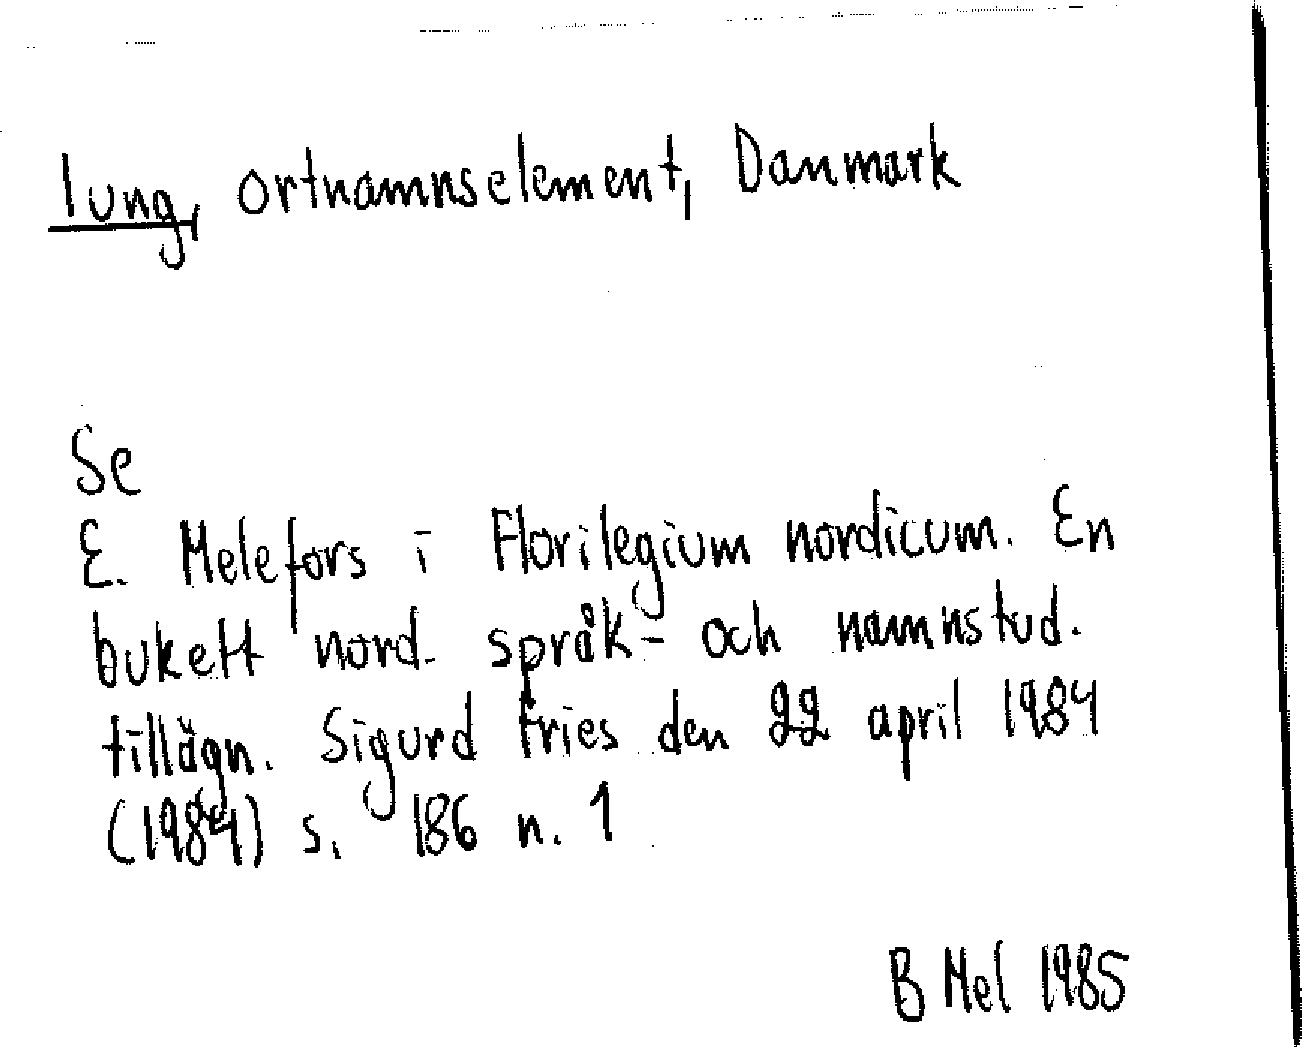 lung, ortnamnselement, Danmark
Se
E. Melefors i Florilegium nordicum. En
bukett nord. språk- och namnstud.
tillägn. Sigurd Fries den 22 april 1984
(1984) s. 186 n. 1
B Mel 1985